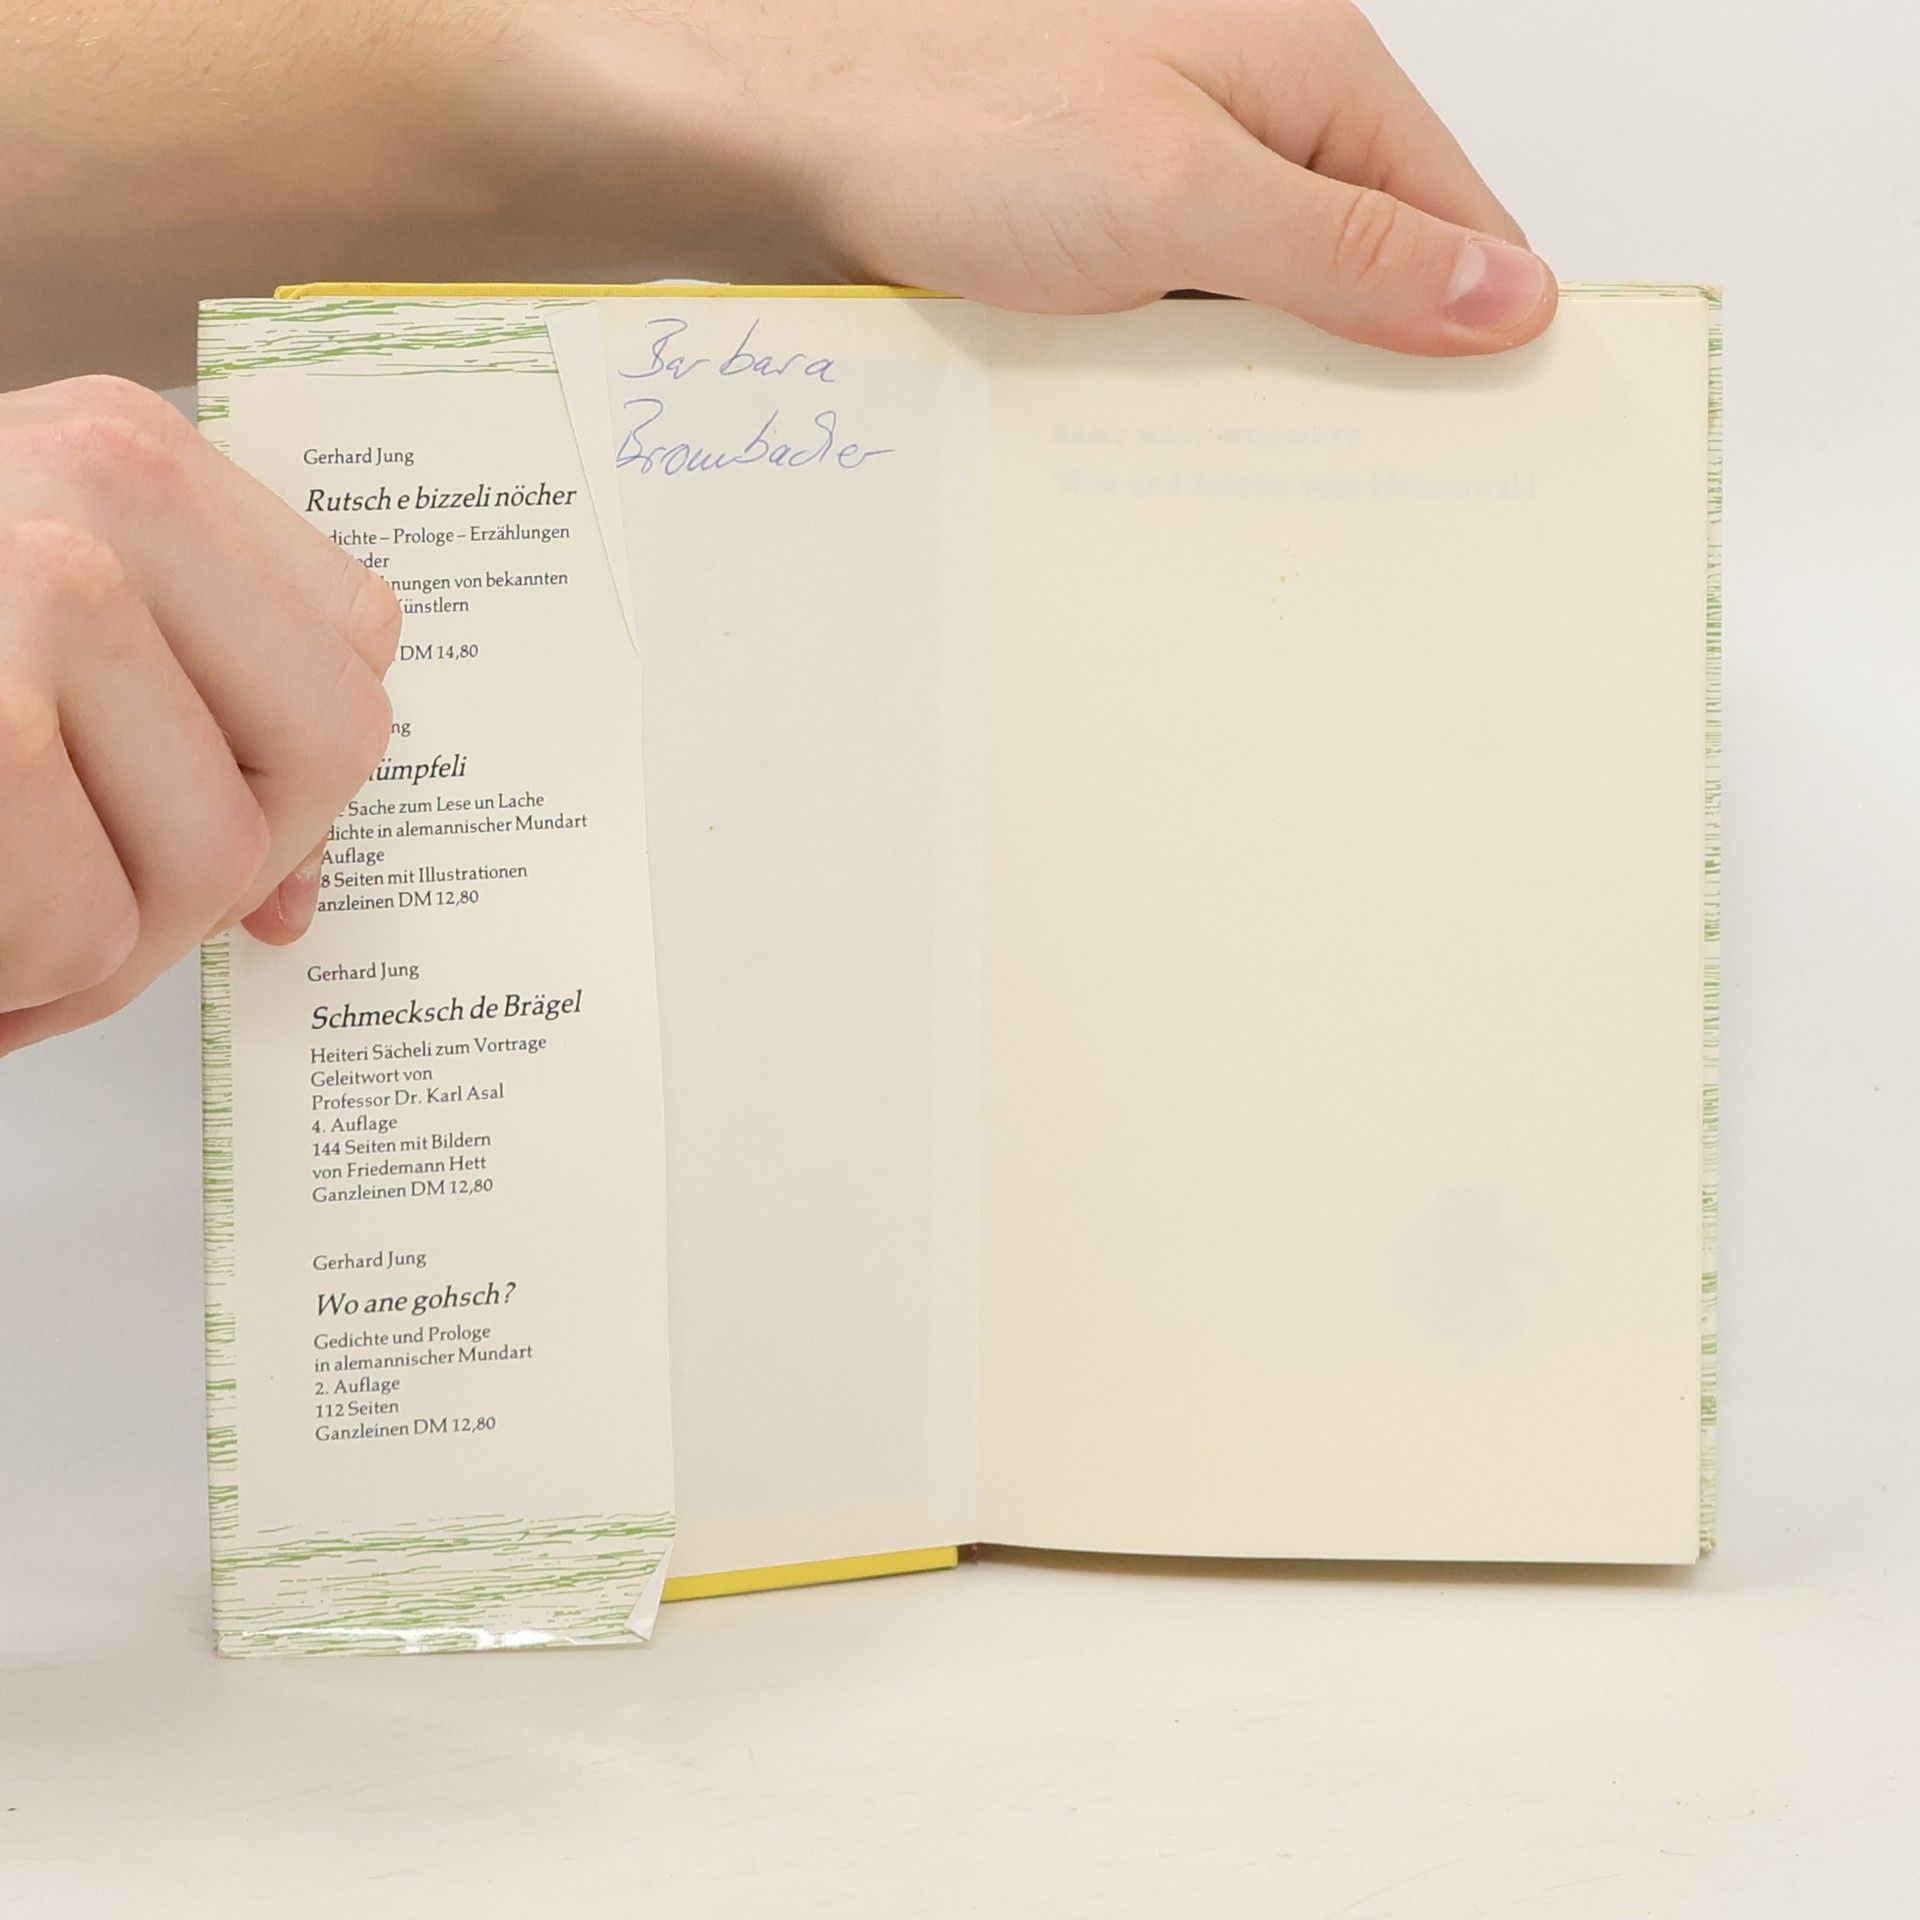 Barbara
Brombacher
Gerhard Jung
Rutsch e bizzeli nöcher
dichte – Prologe – Erzählungen
der
nungen von bekannten
ünstlern
DM 14,80
ng
ümpfeli
Sache zum Lese un Lache
dichte in alemannischer Mundart
Auflage
8 Seiten mit Illustrationen
anzleinen DM 12,80
Gerhard Jung
Schmecksch de Brägel
Heiteri Sächeli zum Vortrage
Geleitwort von
Professor Dr. Karl Asal
4. Auflage
144 Seiten mit Bildern
von Friedemann Hett
Ganzleinen DM 12,80
Gerhard Jung
Wo ane gohsch?
Gedichte und Prologe
in alemannischer Mundart
2. Auflage
112 Seiten
Ganzleinen DM 12,80